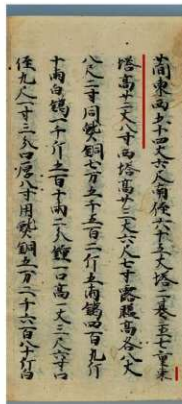 東西五十四丈六尺南径六十五丈塔二基並七重東
塔高廿三丈八寸西塔高廿三丈六尺七寸露盤高各八丈
八尺二寸用熟銅七万五千五百二斤五両錫四百九斤
十両白鑞一千斤五百十両二分鐘一口高一丈三尺六寸口
径九尺一寸三分口厚八寸用熟銅五万二千六百八十斤白